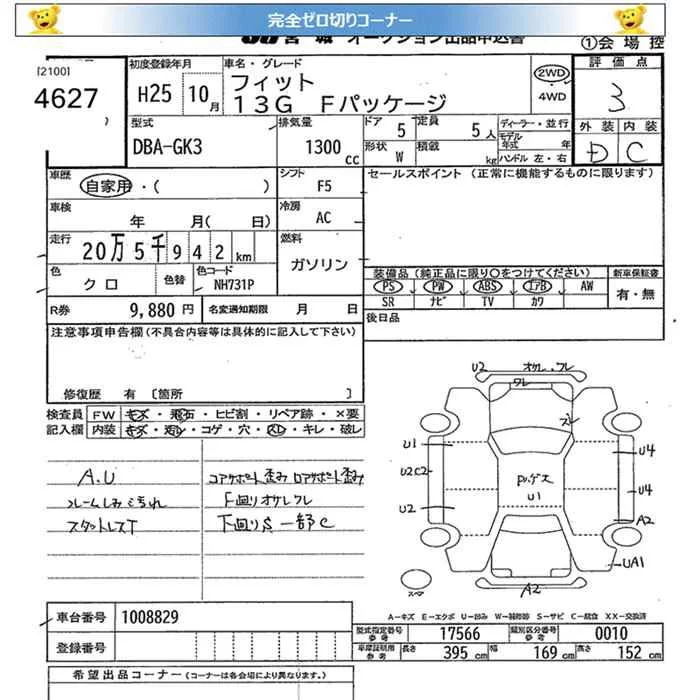 完全ゼロ切りコーナー
宮城 オークション出品申込書
①会場控
[2100]
4627
初度登録年月
H25 10月
車名・グレード
フィット
13G Fパッケージ
2WD
4WD
評価点
3
外装 内装
D C
型式
DBA-GK3
排気量
1300 cc
ドア 5
定員 5人
形状 W
積載 kg
ディーラー・並行
モデル年式 年
ハンドル 左・右
車歴
自家用・( )
シフト F5
セールスポイント (正常に機能するものに限ります)
車検
年 月( 日)
冷房 AC
走行
20万5千942km
燃料
ガソリン
色
クロ
色替
色コード
NH731P
装備品(純正品に限り○をつけてください)
PS PW ABS エアB AW
SR ナビ TV カワ
新車保証書
有・無
R券 9,880円
名変通知期限 月 日
後日品
注意事項申告欄(不具合内容等は具体的に記入して下さい)
修復歴 有 [箇所 ]
検査員記入欄
FW キズ・飛石・ヒビ割・リペア跡・×要
内装 キズ・汚レ・コゲ・穴・スレ・キレ・破レ
A.U
フレームしみ汚れ
スタットレスT
コアサポート歪み ロアサポート歪み
F廻りオサレフレ
下廻りS 一部C
U2 オサレ.フレ
ワレ
ズレ
U1
U2C2
U2
U1
U4
U4
A2
UA1
A2
スペア
A-キズ E-エクボ U-凹み W-補修跡 S-サビ C-腐食 XX-交換済
車台番号 1008829
登録番号
型式指定番号参考 17566
類別区分番号参考 0010
車庫証明用参考 長さ 395cm 幅 169cm 高さ 152cm
希望出品コーナー (コーナーは各会場により異なります。)